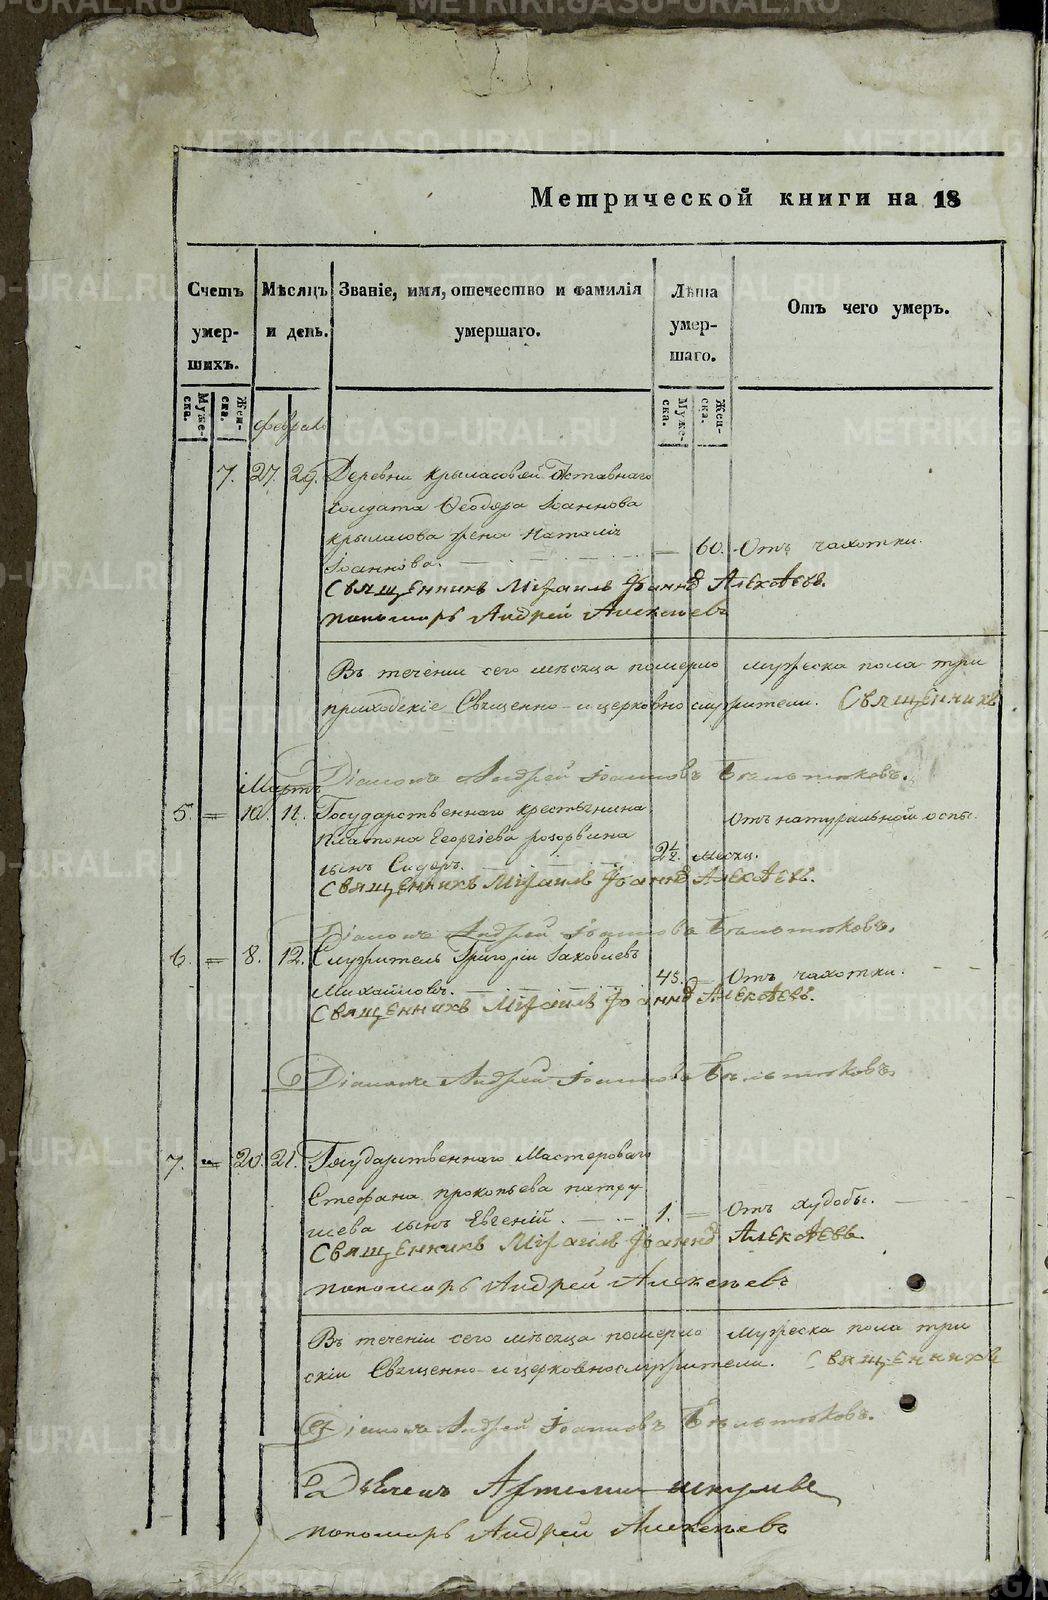 Метрической книги на 18
Счетъ умер-шихъ.
Мѣсяцъ и день.
Званіе, имя, отечество и фамилія умершаго.
Лѣта умер-шаго.
Отъ чего умеръ.
Муже-ска.
Жен-ска.
Муже-ска.
Жен-ска.
февраль
7. 27. 29. Деревни Крыласовой Отставнаго
солдата Ѳеодора Іоаннова
крыласова жена Наталія
Іоаннова. — 60. Отъ чахотки.
Священникъ Міхаилъ Іоаннъ Алексѣевъ.
пономарь Андрей Алексѣевъ
Въ теченіи сего мѣсяца померло мужеска пола три
приходскіе Священно-и церковно служители. Священникъ
Діаконъ Андрей Іоанновъ Бѣльтюковъ.
Мартъ
5. = 10. 11. Государственнаго крестьянина
Платона Георгіева
сынъ Сидоръ. 2½ месяц. Отъ натуральной оспы.
Священникъ Міхаилъ Іоаннъ Алексѣевъ.
Діаконъ Андрей Іоанновъ Бѣльтюковъ.
6. = 8. 12. Служитель Григорій Іаковлевъ
Михайловъ. 45. — Отъ чахотки.
Священникъ Міхаилъ Іоаннъ Алексѣевъ.
Діаконъ Андрей Іоанновъ Бѣльтюковъ.
7. = 20. 21. Государственнаго Мастероваго
Стефана прокопьева патру
шева сынъ Евгеній. 1. = Отъ худобы.
Священникъ Міхаилъ Іоаннъ Алексѣевъ.
пономарь Андрей Алексѣевъ
Въ теченіи сего мѣсяца померло мужеска пола три
скіи Священно-и церковнослужители. Священникъ
Діаконъ Андрей Іоанновъ Бѣльтюковъ.
Артемий
пономарь Андрей Алексѣевъ
METRIKI.GASO-URAL.RU